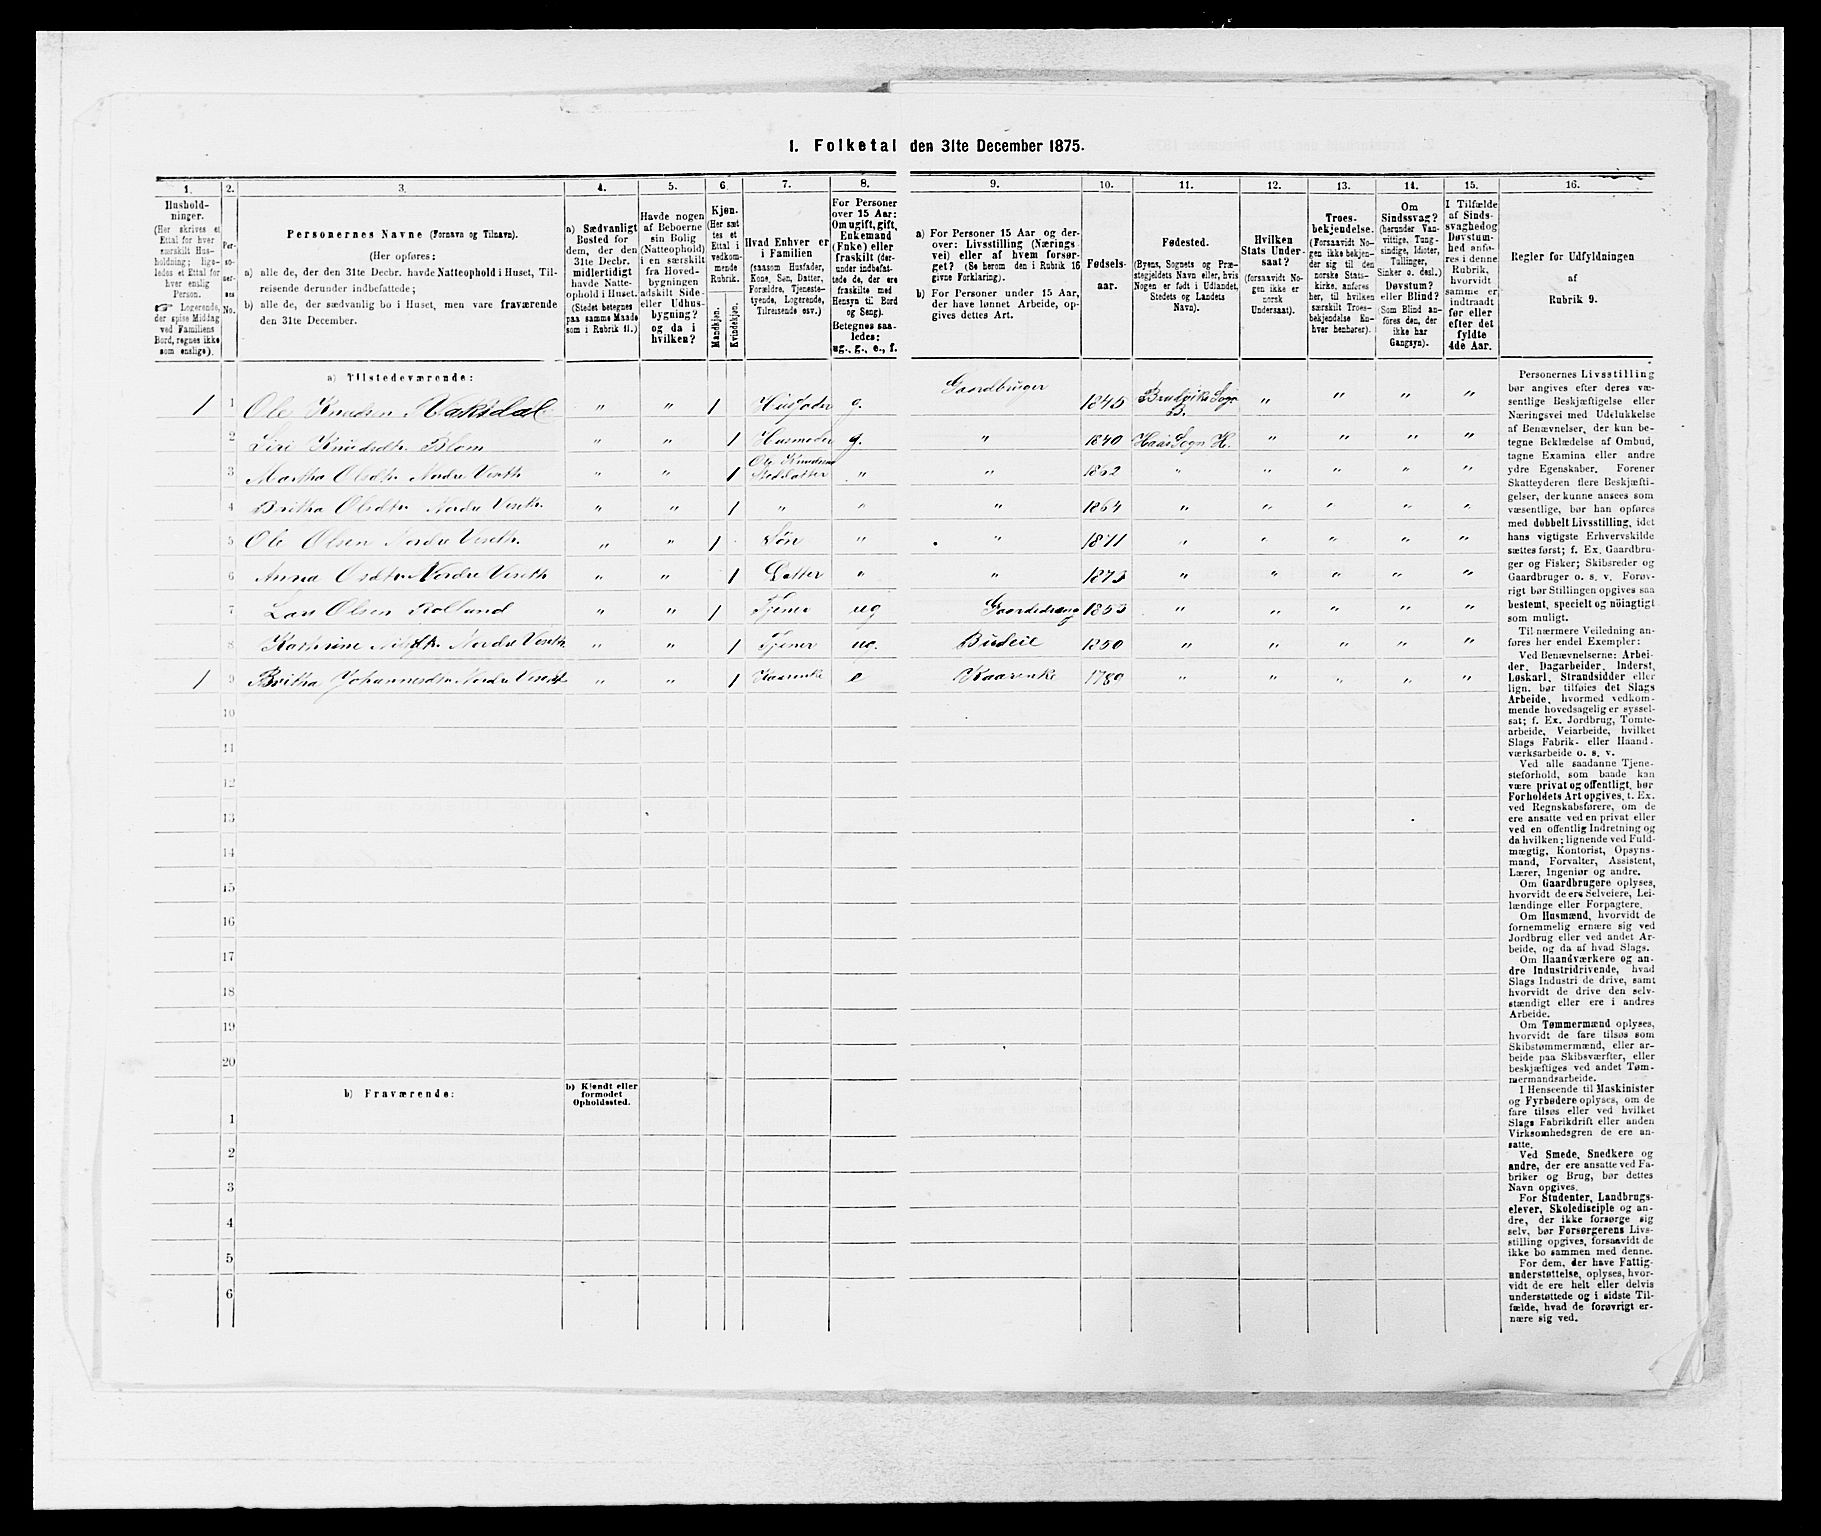 1. Folketal den 31te December 1875.
1. 2. 3. 4. 5. 6. 7. 8. 9. 10. 11. 12. 13. 14. 15. 16.
Hushold-
ninger.
(Her skrives et
Ettal for hver
særskilt Hus-
holdning; lige-
ledes et Ettal for
hver enslig
Person.
Logerende,
der spise Middag
ved Familiens
Bord, regnes ikke
som enslige).
Per-
so-
ner-
nes
No.
Personernes Navne (Fornavn og Tilnavn).
(Her opføres:
a) alle de, der den 31te Decbr. havde Natteophold i Huset, Til-
reisende derunder indbefattede;
b) alle de, der sædvanlig bo i Huset, men vare fraværende
den 31te December.
a) Sædvanligt
Bosted for
dem, der den
31te Decbr.
midlertidigt
havde Natte-
ophold i Huset.
(Stedet betegnes
paa samme Maade
som i Rubrik 11.)
Havde nogen
af Beboerne
sin Bolig
(Natteophold)
i en særskilt
fra Hoved-
bygningen
adskilt Side-
eller Udhus-
bygning?
og da i
hvilken?
Kjøn.
(Her sæt-
tes et
Ettal i
vedkom-
mende
Rubrik.
Mandkjøn.
Kvindekjøn.
Hvad Enhver er
i Familien
(saasom Husfader,
Kone, Søn, Datter,
Forældre, Tjeneste-
tyende, Logerende,
Tilreisende osv.)
For Personer
over 15 Aar:
Om ugift, gift,
Enkemand
(Enke) eller
fraskilt (der-
under indbefat-
tede de, der ere
fraskilte med
Hensyn til Bord
og Seng).
Betegnes saa-
ledes:
ug., g., e., f.
a) For Personer 15 Aar og der-
over: Livsstilling (Nærings
vei) eller af hvem forsør-
get? (Se herom den i Rubrik 16
givne Forklaring).
b) For Personer under 15 Aar,
der have lønnet Arbeide, op-
gives dettes Art.
Fødsels-
aar.
Fødested.
(Byens, Sognets og Præ-
stegjeldets Navn eller, hvis
Nogen er født i Udlandet,
Stedets og Landets
Navn).
Hvilken
Stats Under-
saat?
(forsaavidt No-
gen ikke er
norsk
Undersaat).
Troes-
bekjendelse.
(Forsaavidt No-
gen ikke bekjen-
der sig til den
norske Stats-
kirke, anføres
her, til hvilken
særskilt Troes-
bekjendelse En-
hver henhører).
Om
Sindssvag?
(herunder Van-
vittige, Tung-
sindige, Idioter,
Tullinger,
Sinker o. desl.)
Døvstum?
eller Blind?
(Som Blind an-
føres den, der
ikke har
Gangsyn).
I Tilfælde
af Sinds-
svaghed og
Døvstum-
hed anfø-
res i denne
Rubrik,
hvorvidt
samme er
indtraadt
før eller
efter det
fyldte
4de Aar.
Regler for Udfyldningen
af
Rubrik 9.
a) Tilstedeværende:
1 1 Ole Knudsen Vaksdal " " 1 Husfader g. Gaardbruger 1845 Brudviks Sogn B. " " " "
2 Siri Knudsdtr. Blom " " 1 Husmoder g. " 1840 Haus Sogn H. " " " "
3 Martha Olsdtr Nordre Veseth " " 1 Ole Knudsens Steddatter " " 1862 " " " " "
4 Britha Olsdtr Nordre Veseth " " 1 " " " 1864 " " " " "
5 Ole Olsen Nordre Veseth " " 1 Søn " " 1871 " " " " "
6 Anna Olsdtr Nordre Veseth " " 1 Datter " " 1873 " " " " "
7 Lars Olsen Rolland " " 1 Tjener ug Gaardsdreng 1853 " " " " "
8 Kathrine Nilsdtr. Nordre Veseth " " 1 Tjener ug. Budeie 1850 " " " " "
1 9 Britha Johannesdtr Nordre Veseth " " 1 Kaarenke e Kaarenke 1789 " " " " "
10
11
12
13
14
15
16
17
18
19
20
b) Fraværende:
b) Kjendt eller
formodet
Opholdssted.
1
2
3
4
5
6
Personernes Livsstilling
bør angives efter deres væ-
sentlige Beskjæftigelse eller
Næringsvei med Udelukkelse
af Benævnelser, der kun be-
tegne Beklædelse af Ombud,
tagne Examina eller andre
ydre Egenskaber. Forener
Skatteyderen flere Beskjæfti-
gelser, der kunne ansees som
væsentlige, bør han opføres
med dobbelt Livsstilling, idet
hans vigtigste Erhvervskilde
sættes først; f. Ex. Gaardbru-
ger og Fisker; Skibsreder og
Gaardbruger o. s. v. Forøv-
rigt bør Stillingen opgives saa
bestemt, specielt og nöiagtigt
som muligt.
Til nærmere Veiledning an-
føres her endel Exempler:
Ved Benævnelserne: Arbei-
der, Dagarbeider, Inderst,
Løskarl, Strandsidder eller
lign. bør tilføies det Slags
Arbeide, hvormed vedkom-
mende hovedsagelig er syssel-
sat; f. Ex. Jordbrug, Tomte-
arbeide, Veiarbeide, hvilket
Slags Fabrik- eller Haand-
værksarbeide o. s. v.
Ved alle saadanne Tjene-
steforhold, som baade kan
være privat og offentligt, bør
Forholdets Art opgives, t. Ex.
ved Regnskabsførere, om de
ere ansatte ved en privat eller
ved en offentlig Indretning og
da hvilken; lignende ved Fuld-
mægtig, Kontorist, Opsyns-
mand, Forvalter, Assistent,
Lærer, Ingeniør og andre.
Om Gaardbrugere oplyses,
hvorvidt de ere Selveiere, Lei-
lændinge eller Forpagtere.
Om Husmænd, hvorvidt de
fornemmelig ernære sig ved
Jordbrug eller ved andet Ar-
beide, og da af hvad Slags.
Om Haandværkere og an-
dre Industridrivende, hvad
Slags Industri de drive, samt
hvorvidt de drive den selv-
stændigt eller ere i andres
Arbeide.
Om Tømmermænd oplyses,
hvorvidt de fare tilsøs som
Skibstømmermænd, eller ar-
beide paa Skibsværfter, eller
beskjæftiges ved andet Tøm-
mermandsarbeide.
I Henseende til Maskinister
og Fyrbødere oplyses, om de
fare tilsøs eller ved hvilket
Slags Fabrikdrift eller anden
Virksomhedsgren de ere an-
satte.
Ved Smede, Snedkere og
andre, der ere ansatte ved Fa-
briker og Brug, bør dettes
Navn opgives.
For Studenter, Landbrugs-
elever, Skoledisciple og an-
dre, der ikke forsørge sig
selv, bør Forsørgerens Livs-
stilling opgives, forsaavidt de
ikke bo sammen med denne.
For dem, der have Fattig-
understøttelse, oplyses, hvor-
vidt de ere helt eller delvis
understøttede og i sidste Til-
fælde, hvad de forøvrigt er-
nære sig ved.